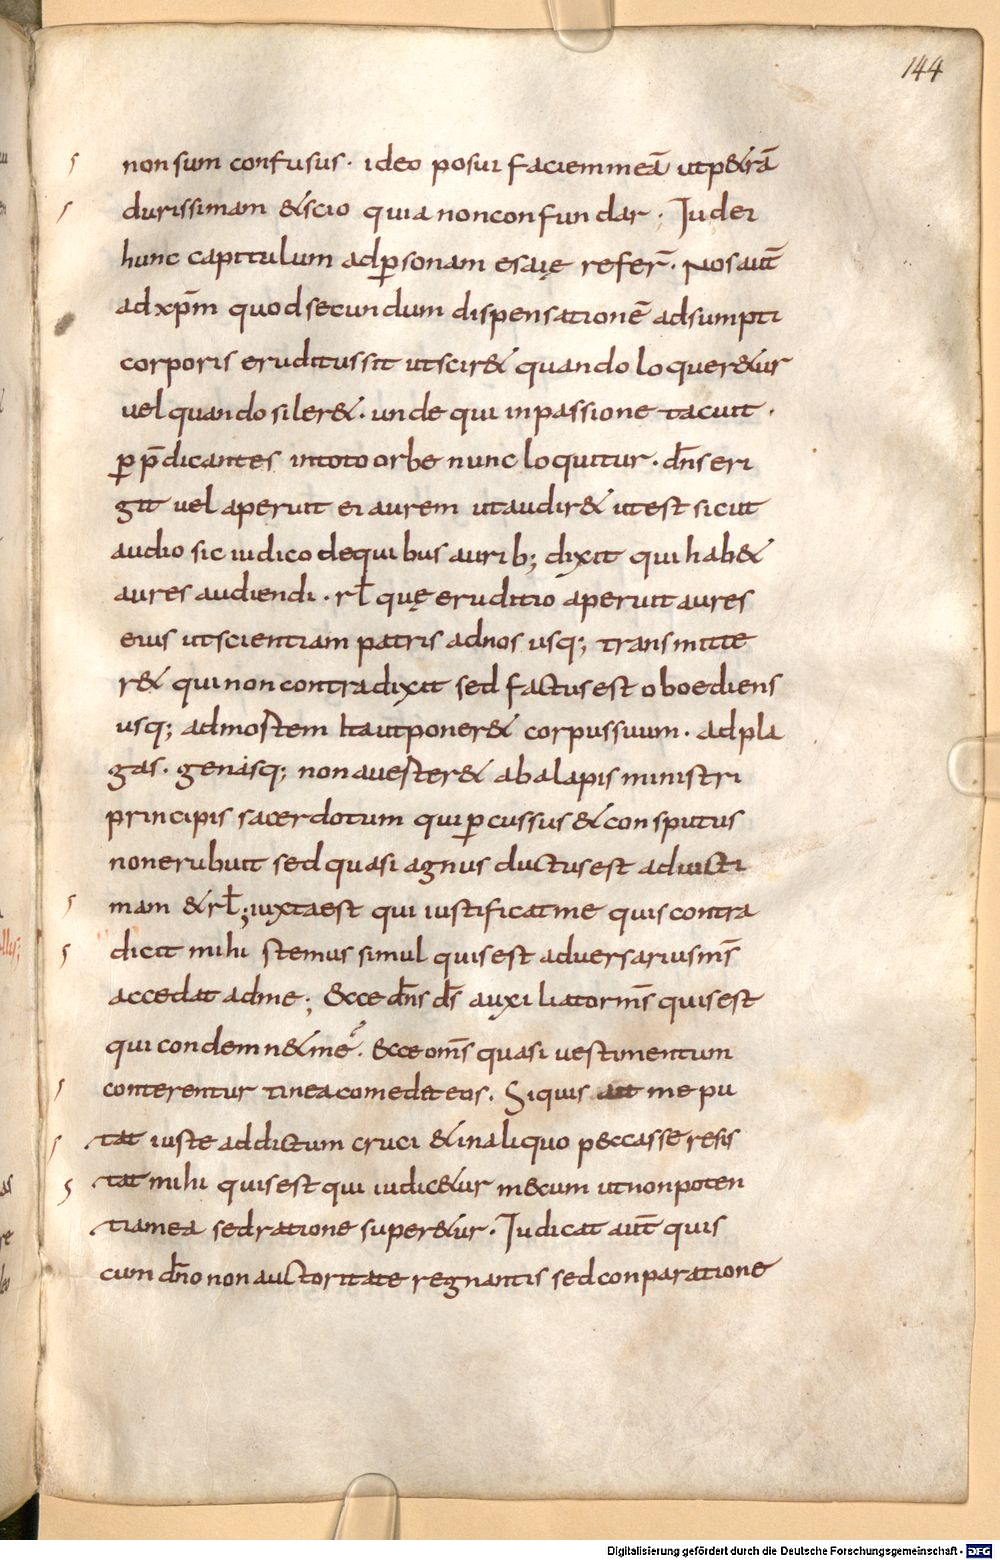 144
non sum confusus · ideo posui faciem meā ut p&rā
durissimam & scio quia non confundar · Iudei
hunc capitulum ad ꝑsonam esaię refer̄ · Nos aut̄
ad xp̄m quod secundum dispensationē adsumpti
corporis eruditus sit ut scir& quando loquer&ur
uel quando siler& · unde qui in passione tacuit ·
ꝑ p̄dicantes in toto orbe nunc loquitur · dn̄s eri
git uel aperuit ei aurem ut audir& ut est sicut
audio sic iudico de quibus aurib; dixit qui hab&
aures audiendi · rł quę eruditio aperuit aures
eius ut scientiam patris ad nos usq; transmitte
r& qui non contradixit sed factus est oboediens
usq; ad mortem Ita ut poner& corpus suum · ad pla
gas · genasq; non auerter& ab alapis ministri
principis sacerdotum qui ꝑcussus & consputus
non erubuit sed quasi agnus ductus est ad uicti
mam & rł; iuxta est qui iustificat me quis contra
dicit mihi stemus simul quis est aduersarius ms̄
accedat ad me ; Ecce dn̄s ds̄ auxiliator ms̄ quis est
qui condemn& me · Ecce oms̄ quasi uestimentum
conterentur tinea comedet eos · Si quis aut me pu
tat iuste addictum cruci & in aliquo peccasse resis
tat mihi quis est qui iudic&ur mecum ut non poten
tia mea sed ratione super&ur · Iudicat aut̄ quis
cum dn̄o non auctoritate regnantis sed conparatione
Digitalisierung gefördert durch die Deutsche Forschungsgemeinschaft - DFG